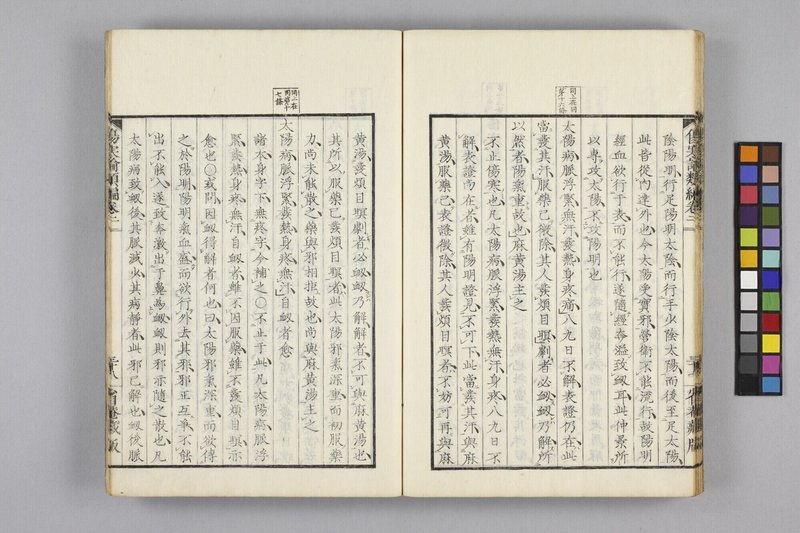 陰陽明行足陽明太陰而行手少陰太陽而後至足太陽
此皆從內達外也今太陽受寒邪營衛不能流行故陽明
經血欲行于表而不能行遂隨經奔溢致衂耳此仲景所
以專攻太陽不攻陽明也
同上在同第十六條
太陽病脈浮緊無汗發熱身疼痛八九日不解表證仍在此
當發其汗服藥已微除其人發煩目瞑劇者必衂衂乃解所
以然者陽氣重故也麻黃湯主之
不止傷寒也凡太陽病脈浮緊發熱無汗身疼八九日不
解表證尚在者雖有陽明證見不可下此當發其汗與麻
黃湯服藥已表證微除其人發煩目瞑者不妨可再與麻
黃湯發煩目瞑劇者必衂衂乃解解者不可與麻黃湯也
其所以服藥已發煩目瞑者此太陽邪氣深重而初服藥
力尚未能散之藥與邪相拒故也尚與麻黃湯主之
同上在同第十七條
太陽病脈浮緊發熱身疼無汗自衂者愈
諸本身字下無疼字今補之○不止于此凡太陽病脈浮
緊發熱身疼無汗自衂者雖不因服藥雖不發煩目瞑亦
愈也○或問因衂得解者何也曰太陽邪氣深重而欲傳
之於陽明陽明氣血盛而欲行外去其邪邪正互爭不能
出不能入遂致奔激出于鼻為衂衂則邪亦隨之散也凡
太陽病致衂後其脈減火其病靜者此邪已解也衂後脈
傷寒論類編卷二
二十八